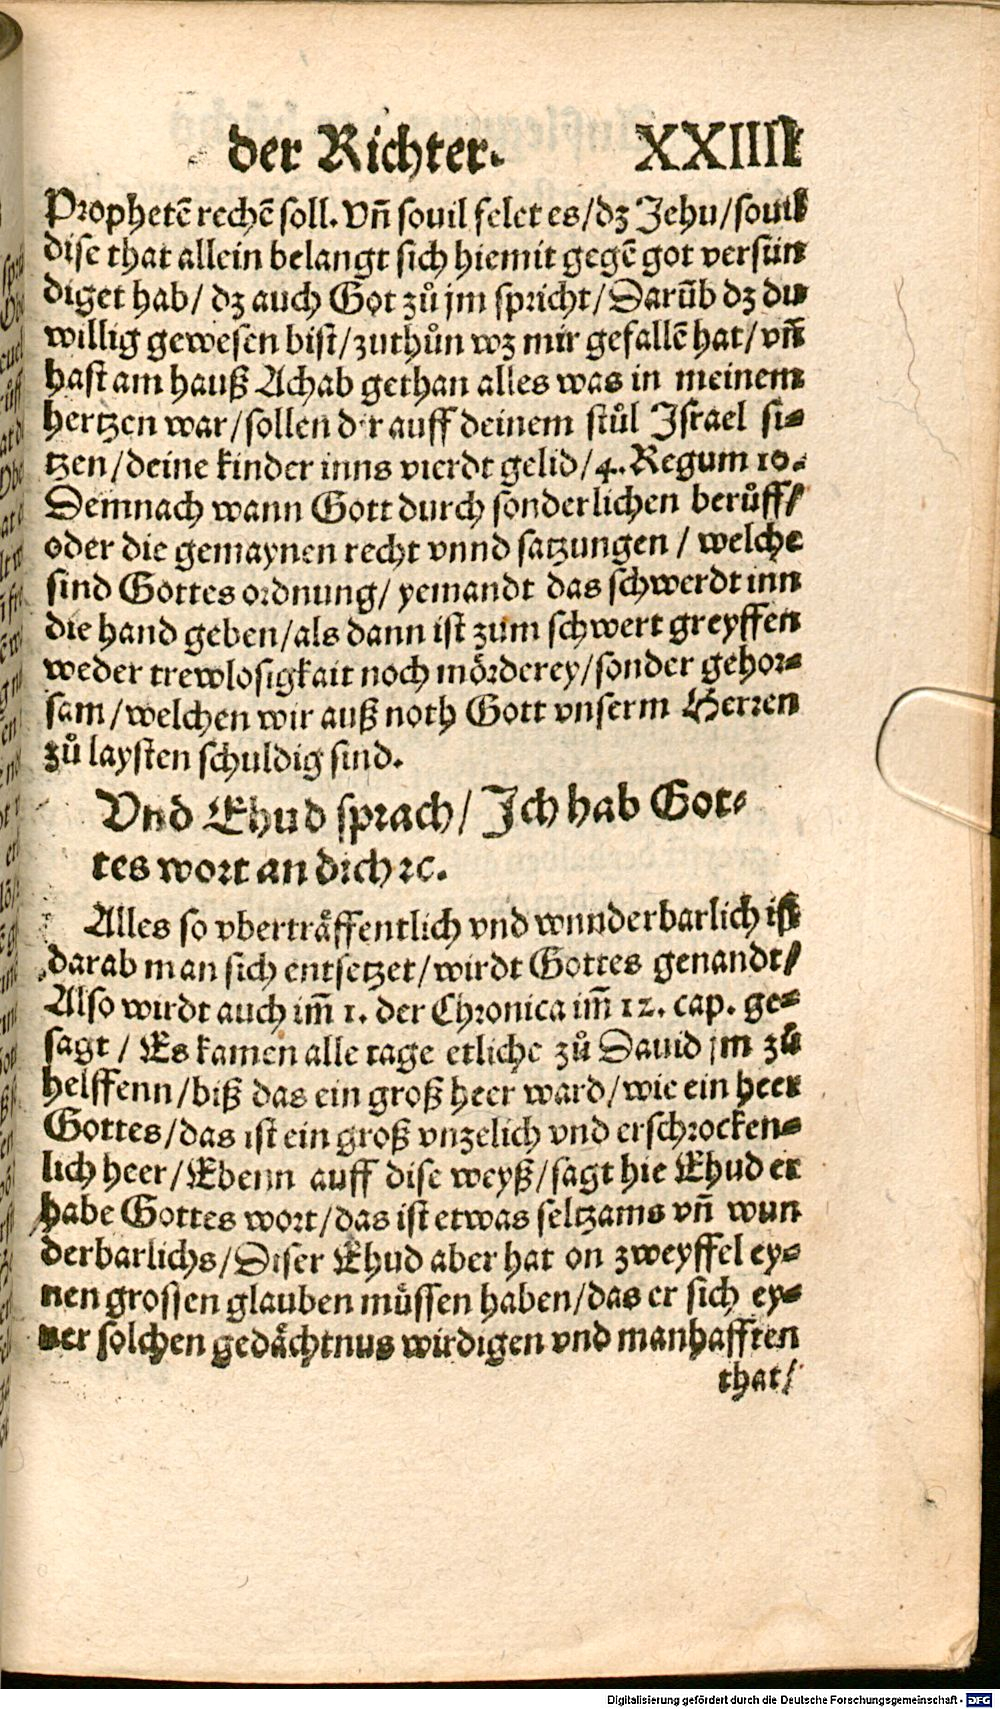 der Richter. XXIIII
Prophetē rechē soll. Vñ souil felet es/dz Jehu/souil
dise that allein belangt sich hiemit gegē got versün
diget hab/ dz auch Got zů jm spricht/Darūb dz du
willig gewesen bist/zuthůn wz mir gefallē hat/vñ
hast am hauß Achab gethan alles was in meinem
hertzen war/sollen dir auff deinem stůl Israel si-
tzen/deine kinder inns vierdt gelid/4. Regum 10.
Demnach wann Gott durch sonderlichen berůff/
oder die gemaynen recht vnnd satzungen / welche
sind Gottes ordnung/ yemandt das schwerdt inn
die hand geben/als dann ist zum schwert greyffen
weder trewlosigkait noch mörderey/sonder gehor-
sam/welchen wir auß noth Gott vnserm Herren
zů laysten schuldig sind.
Vnd Ehud sprach/ Jch hab Got-
tes wort an dich ꝛc.
Alles so vberträffentlich vnd wunderbarlich ist
darab man sich entsetzet/wirdt Gottes genandt/
Also wirdt auch im̄ 1. der Chronica im̄ 12. cap. ge-
sagt / Es kamen alle tage etliche zů Dauid jm zů
helffenn/biß das ein groß heer ward/wie ein heer
Gottes/das ist ein groß vnzelich vnd erschrocken-
lich heer/Ebenn auff dise weyß/sagt hie Ehud er
habe Gottes wort/das ist etwas seltzams vñ wun
derbarlichs/Diser Ehud aber hat on zweyffel ey-
nen grossen glauben müssen haben/das er sich ey-
ner solchen gedächtnus wirdigen vnd manhafften
that/
Digitalisierung gefördert durch die Deutsche Forschungsgemeinschaft - DFG